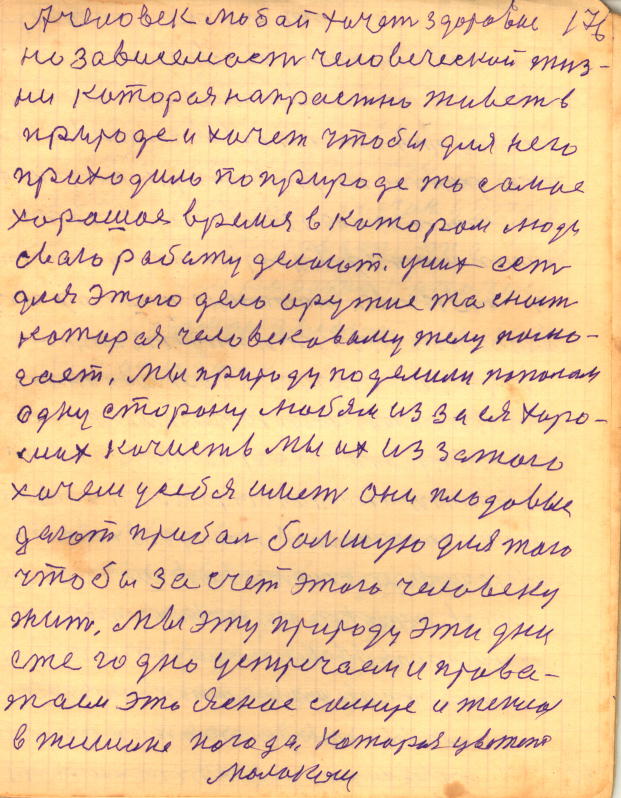 А человек любой хочет здоровье 176.
но зависемост человеческой жиз-
ни которая напрастно живеть в
природе и хочет чтобы для него
приходило по природе то самое
хорошое время в котором люди
сваю работу делают. у них есть
для этого дело оружие та снаст
которая человековому телу помо-
гает. Мы природу поделили пополам
одну сторону любям из за ея хоро-
ших качисть мы их из затого
хочем у себя имет они плодовые
делают прибал большую для того
чтобы за счет этого человеку
жит. Мы эту природу эти дни
еже годно устречаем и прова-
жаем это ясное солнце и тепло
в тишине погода. Которая цветет
молоком